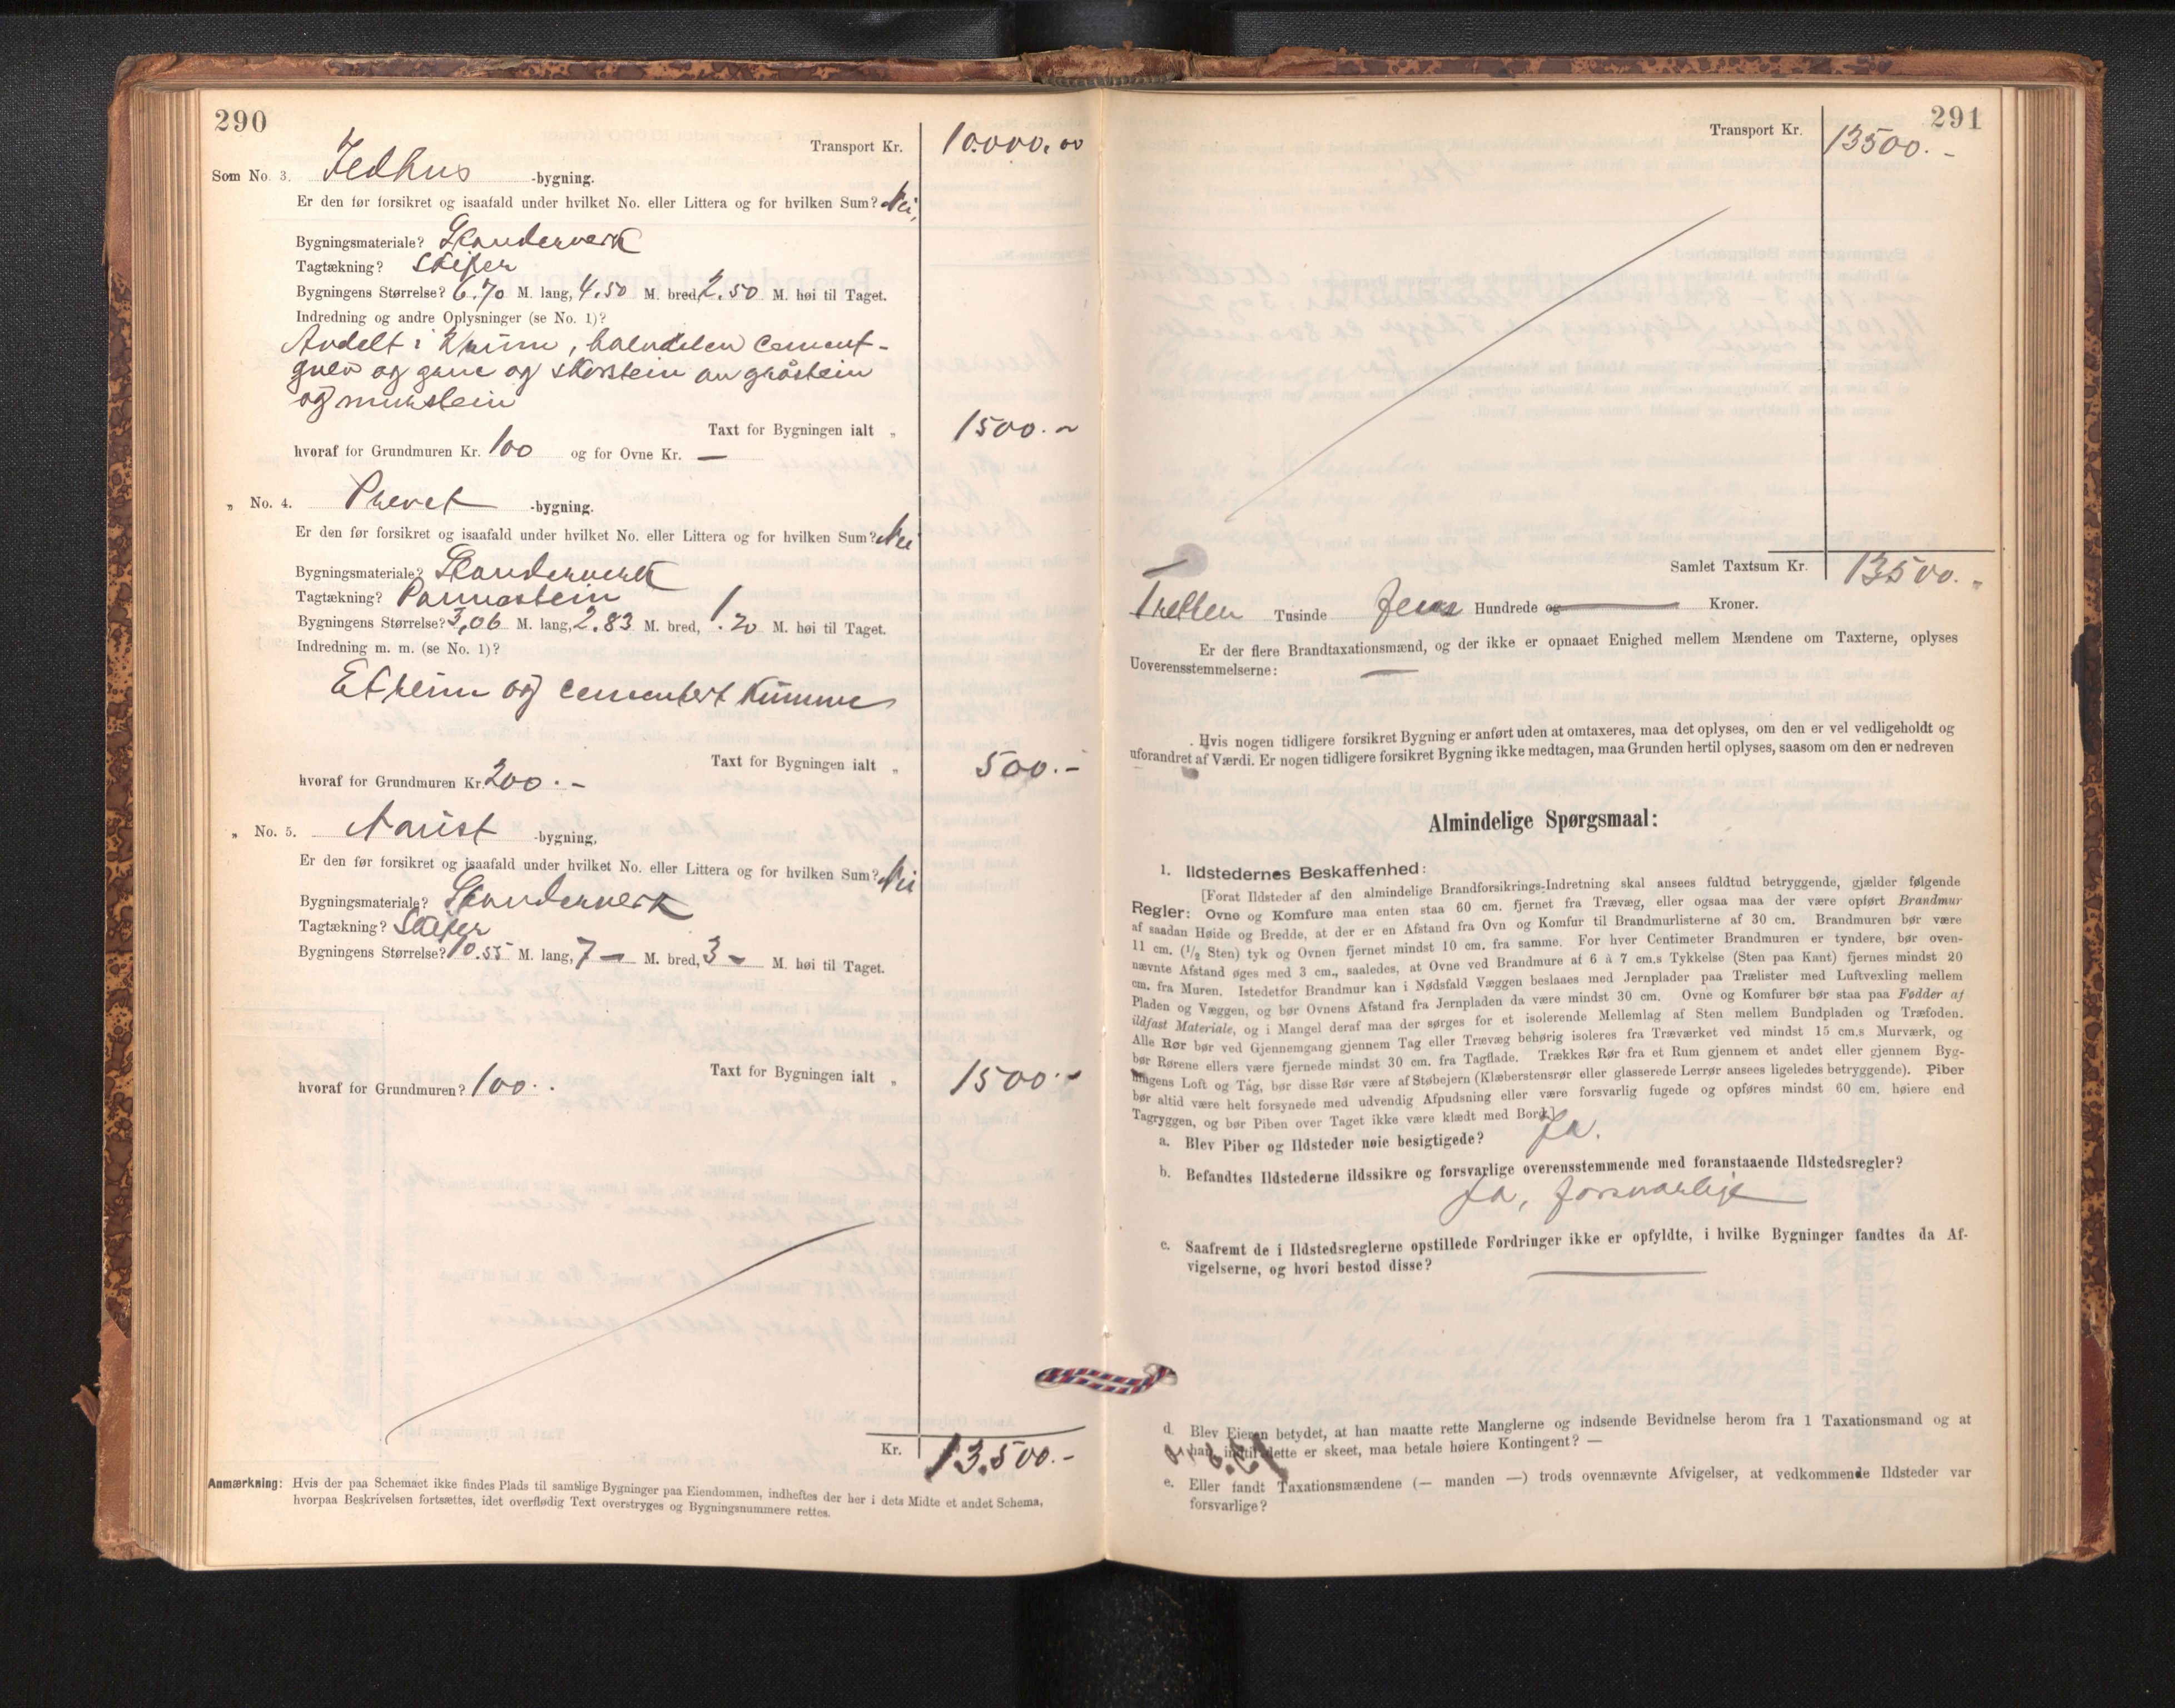 290
Transport Kr. 10.000.00
Som No. 3. Ildhus -bygning.
Er den før forsikret og isaafald under hvilket No. eller Littera og for hvilken Sum? Nei,
Bygningsmateriale? Standerverk
Tagtækning? Skifer
Bygningens Størrelse? 6.70 M. lang, 4.50 M. bred, 2.50 M. høi til Taget.
Indredning og andre Oplysninger (se No. 1)?
Avdelt i 2 rum, halvdelen cement-
gulv og grue og skorstein av gråstein
og murstein
Taxt for Bygningen ialt „ 1500.–
hvoraf for Grundmuren Kr. 100 og for Ovne Kr. —
„ No. 4. Privet -bygning.
Er den før forsikret og isaafald under hvilket No. eller Littera og for hvilken Sum? Nei
Bygningsmateriale? Standerverk
Tagtækning? Pannestein
Bygningens Størrelse? 3,06 M. lang, 2.83 M. bred, 1.20 M. høi til Taget.
Indredning m. m. (se No. 1)?
Et rum og cementert kumme
Taxt for Bygningen ialt „ 500.–
hvoraf for Grundmuren Kr. 200.–
„ No. 5. Naust -bygning,
Er den før forsikret og isaafald under hvilket No. eller Littera og for hvilken Sum? Nei
Bygningsmateriale? Standerverk
Tagtækning? Skifer
Bygningens Størrelse? 10.55 M. lang, 7 – M. bred, 3 – M. høi til Taget.
Taxt for Bygningen ialt „ 1500.–
hvoraf for Grundmuren? 100..
Kr. 13.500.–
Anmærkning: Hvis der paa Schemaet ikke findes Plads til samtlige Bygninger paa Eiendommen, indheftes der her i dets Midte et andet Schema,
hvorpaa Beskrivelsen fortsættes, idet overflødig Text overstryges og Bygningsnummere rettes.
291
Transport Kr. 13500.–
Samlet Taxtsum Kr. 13500.„
Tretten Tusinde fem Hundrede og — Kroner.
Er der flere Brandtaxationsmænd, og der ikke er opnaaet Enighed mellem Mændene om Taxterne, oplyses
Uoverensstemmelserne: —
Hvis nogen tidligere forsikret Bygning er anført uden at omtaxeres, maa det oplyses, om den er vel vedligeholdt og
uforandret af Værdi. Er nogen tidligere forsikret Bygning ikke medtagen, maa Grunden hertil oplyses, saasom om den er nedreven
Almindelige Spørgsmaal:
1. Ildstedernes Beskaffenhed:
[Forat Ildsteder af den almindelige Brandforsikrings-Indretning skal ansees fuldtud betryggende, gjælder følgende
Regler: Ovne og Komfure maa enten staa 60 cm. fjernet fra Trævæg, eller ogsaa maa der være opført Brandmur
af saadan Høide og Bredde, at der er en Afstand fra Ovn og Komfur til Brandmurlisterne af 30 cm. Brandmuren bør være
11 cm. (1/2 Sten) tyk og Ovnen fjernet mindst 10 cm. fra samme. For hver Centimeter Brandmuren er tyndere, bør oven-
nævnte Afstand øges med 3 cm., saaledes, at Ovne ved Brandmure af 6 à 7 cm.s Tykkelse (Sten paa Kant) fjernes mindst 20
cm. fra Muren. Istedetfor Brandmur kan i Nødsfald Væggen beslaaes med Jernplader paa Trælister med Luftvexling mellem
Pladen og Væggen, og bør Ovnens Afstand fra Jernpladen da være mindst 30 cm. Ovne og Komfurer bør staa paa Fødder af
ildfast Materiale, og i Mangel deraf maa der sørges for et isolerende Mellemlag af Sten mellem Bundpladen og Træfoden.
Alle Rør bør ved Gjennemgang gjennem Tag eller Trævæg behørig isoleres fra Træværket ved mindst 15 cm.s Murværk, og
bør Rørene ellers være fjernede mindst 30 cm. fra Tagflade. Trækkes Rør fra et Rum gjennem et andet eller gjennem Byg-
ningens Loft og Tag, bør disse Rør være af Støbejern (Klæberstensrør eller glasserede Lerrør ansees ligeledes betryggende). Piber
bør altid være helt forsynede med udvendig Afpudsning eller være forsvarlig fugede og opføres mindst 60 cm. høiere end
Tagryggen, og bør Piben over Taget ikke være klædt med Bord.]
a. Blev Piber og Ildsteder nøie besigtigede? Ja.
b. Befandtes Ildstederne ildssikre og forsvarlige overensstemmende med foranstaaende Ildstedsregler?
Ja, forsvarlige
c. Saafremt de i Ildstedsreglerne opstillede Fordringer ikke er opfyldte, i hvilke Bygninger fandtes da Af-
vigelserne, og hvori bestod disse? —
d. Blev Eieren betydet, at han maatte rette Manglerne og indsende Bevidnelse herom fra 1 Taxationsmand og at
han, indtil dette er skeet, maa betale høiere Kontingent? —
e. Eller fandt Taxationsmændene (— manden —) trods ovennævnte Afvigelser, at vedkommende Ildsteder var
forsvarlige?